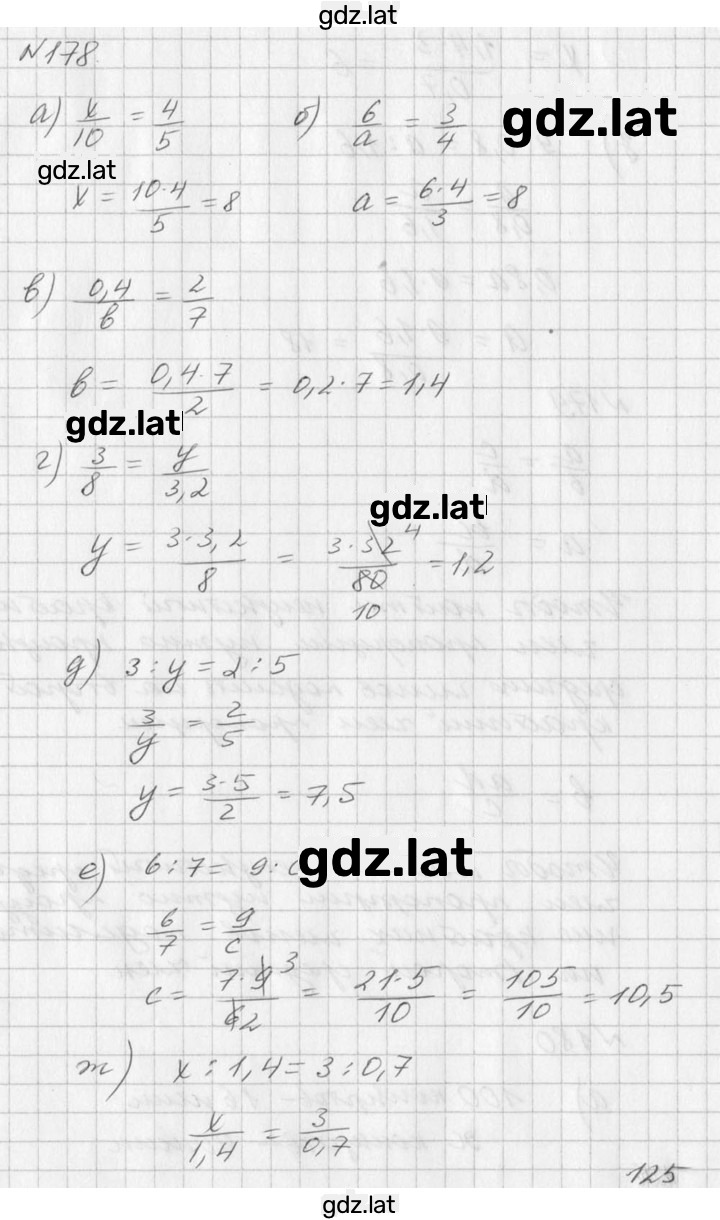 gdz.lat
№178.
а) x/10 = 4/5 б) 6/a = 3/4 gdz.lat
gdz.lat
x = 10·4/5 = 8 a = 6·4/3 = 8
в) 0,4/в = 2/7
в = 0,4·7/2 = 0,2·7 = 1,4
gdz.lat
г) 3/8 = y/3,2
gdz.lat
y = 3·3,2/8 = 3·32 4/80 10 = 1,2
д) 3 : y = 2 : 5
3/y = 2/5
y = 3·5/2 = 7,5
е) 6 : 7 = 9 : c gdz.lat
6/7 = 9/c
c = 7·9 3/6 2 = 21·5/10 = 105/10 = 10,5
ж) x : 1,4 = 3 : 0,7
x/1,4 = 3/0,7
125
gdz.lat